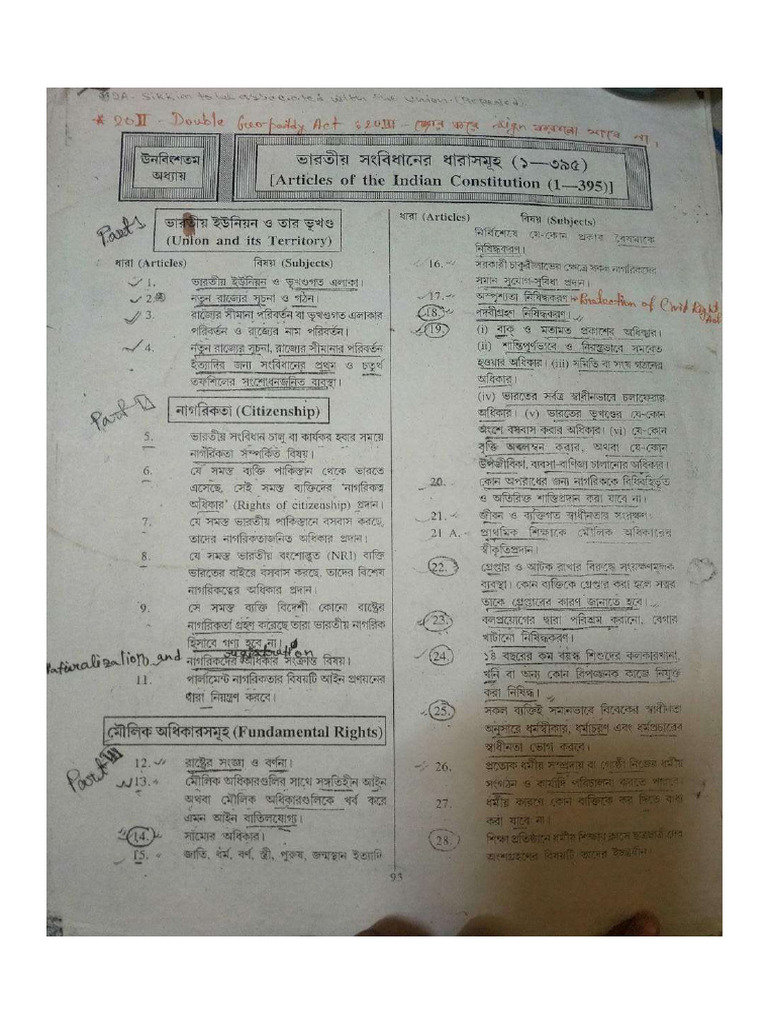 * 20 II - Double Act : 20 III -
ঊনবিংশতম
অধ্যায়
ভারতীয় সংবিধানের ধারাসমূহ (১—৩৯৫)
[Articles of the Indian Constitution (1—395)]
Part I
ভারতীয় ইউনিয়ন ও তার ভূখণ্ড
(Union and its Territory)
ধারা (Articles) বিষয় (Subjects)
1. ভারতীয় ইউনিয়ন ও ভূখণ্ডগত এলাকা।
2. নতুন রাজ্যের সূচনা ও গঠন।
3. রাজ্যের সীমানা পরিবর্তন বা ভূখণ্ডগত এলাকার
পরিবর্তন ও রাজ্যের নাম পরিবর্তন।
4. নতুন রাজ্যের সূচনা, রাজ্যের সীমানার পরিবর্তন
ইত্যাদির জন্য সংবিধানের প্রথম ও চতুর্থ
তফশিলের সংশোধনজনিত ব্যবস্থা।
Part II
নাগরিকতা (Citizenship)
5. ভারতীয় সংবিধান চালু বা কার্যকর হবার সময়ে
নাগরিকতা সম্পর্কিত বিষয়।
6. যে সমস্ত ব্যক্তি পাকিস্তান থেকে ভারতে
এসেছে, সেই সমস্ত ব্যক্তিদের 'নাগরিকত্ব
অধিকার' (Rights of citizenship) প্রদান।
7. যে সমস্ত ভারতীয় পাকিস্তানে বসবাস করছে,
তাদের নাগরিকতাজনিত অধিকার প্রদান।
8. যে সমস্ত ভারতীয় বংশোদ্ভূত (NRI) ব্যক্তি
ভারতের বাইরে বসবাস করছে, তাদের বিশেষ
নাগরিকত্বের অধিকার প্রদান।
9. সে সমস্ত ব্যক্তি বিদেশী কোনো রাষ্ট্রের
নাগরিকতা গ্রহণ করেছে তারা ভারতীয় নাগরিক
হিসাবে গণ্য হবে না।
Naturalization and registration
নাগরিকদের অধিকার সংক্রান্ত বিষয়।
11. পার্লামেন্ট নাগরিকতার বিষয়টি আইন প্রণয়নের
ধারা নিয়ন্ত্রণ করবে।
মৌলিক অধিকারসমূহ (Fundamental Rights)
Part III
12. রাষ্ট্রের সংজ্ঞা ও বর্ণনা।
13. মৌলিক অধিকারগুলির সাথে সঙ্গতিহীন আইন
অথবা মৌলিক অধিকারগুলিকে খর্ব করে
এমন আইন বাতিলযোগ্য।
14. সাম্যের অধিকার।
15. জাতি, ধর্ম, বর্ণ, স্ত্রী, পুরুষ, জন্মস্থান ইত্যাদি
ধারা (Articles) বিষয় (Subjects)
নির্বিশেষে যে-কোন প্রকার বৈষম্যকে
নিষিদ্ধকরণ।
16. সরকারী চাকুরীলাভের ক্ষেত্রে সকল নাগরিকদের
সমান সুযোগ-সুবিধা প্রদান।
17. অস্পৃশ্যতা নিষিদ্ধকরণ। Protection of Civil Right Act
18. পদবীগ্রহণ নিষিদ্ধকরণ।
19. (i) বাক্ ও মতামত প্রকাশের অধিকার।
(ii) শান্তিপূর্ণভাবে ও নিরস্ত্রভাবে সমবেত
হওয়ার অধিকার। (iii) সমিতি বা সংঘ গঠনের
অধিকার।
(iv) ভারতের সর্বত্র স্বাধীনভাবে চলাফেরার
অধিকার। (v) ভারতের ভূখণ্ডের যে-কোন
অংশে বসবাস করার অধিকার। (vi) যে-কোন
বৃত্তি অবলম্বন করার, অথবা যে-কোন
উপজীবিকা, ব্যবসা-বাণিজ্য চালানোর অধিকার।
20. কোন অপরাধের জন্য নাগরিককে বিধিবহির্ভূত
ও অতিরিক্ত শাস্তিপ্রদান করা যাবে না।
21. জীবন ও ব্যক্তিগত স্বাধীনতার সংরক্ষণ।
21 A. প্রাথমিক শিক্ষাকে মৌলিক অধিকারের
স্বীকৃতিপ্রদান।
22. গ্রেপ্তার ও আটক রাখার বিরুদ্ধে সংরক্ষণমূলক
ব্যবস্থা। কোন ব্যক্তিকে গ্রেপ্তার করা হলে সত্বর
তাকে গ্রেপ্তারের কারণ জানাতে হবে।
23. বলপ্রয়োগের দ্বারা পরিশ্রম করানো, বেগার
খাটানো নিষিদ্ধকরণ।
24. ১৪ বছরের কম বয়স্ক শিশুদের কলকারখানা,
খনি বা অন্য কোন বিপজ্জনক কাজে নিযুক্ত
করা নিষিদ্ধ।
25. সকল ব্যক্তিই সমানভাবে বিবেকের স্বাধীনতা
অনুসারে ধর্মস্বীকার, ধর্মাচরণ এবং ধর্মপ্রচারের
স্বাধীনতা ভোগ করবে।
26. প্রত্যেক ধর্মীয় সম্প্রদায় বা গোষ্ঠী নিজের ধর্মীয়
সংগঠন ও কার্যাদি পরিচালনা করতে পারবে।
27. ধর্মীয় কারণে কোন ব্যক্তিকে কর দিতে বাধ্য
করা যাবে না।
28. শিক্ষা প্রতিষ্ঠানে ধর্মীয় শিক্ষার
অংশগ্রহণের বিষয়টি তাদের ইচ্ছাধীন।
93